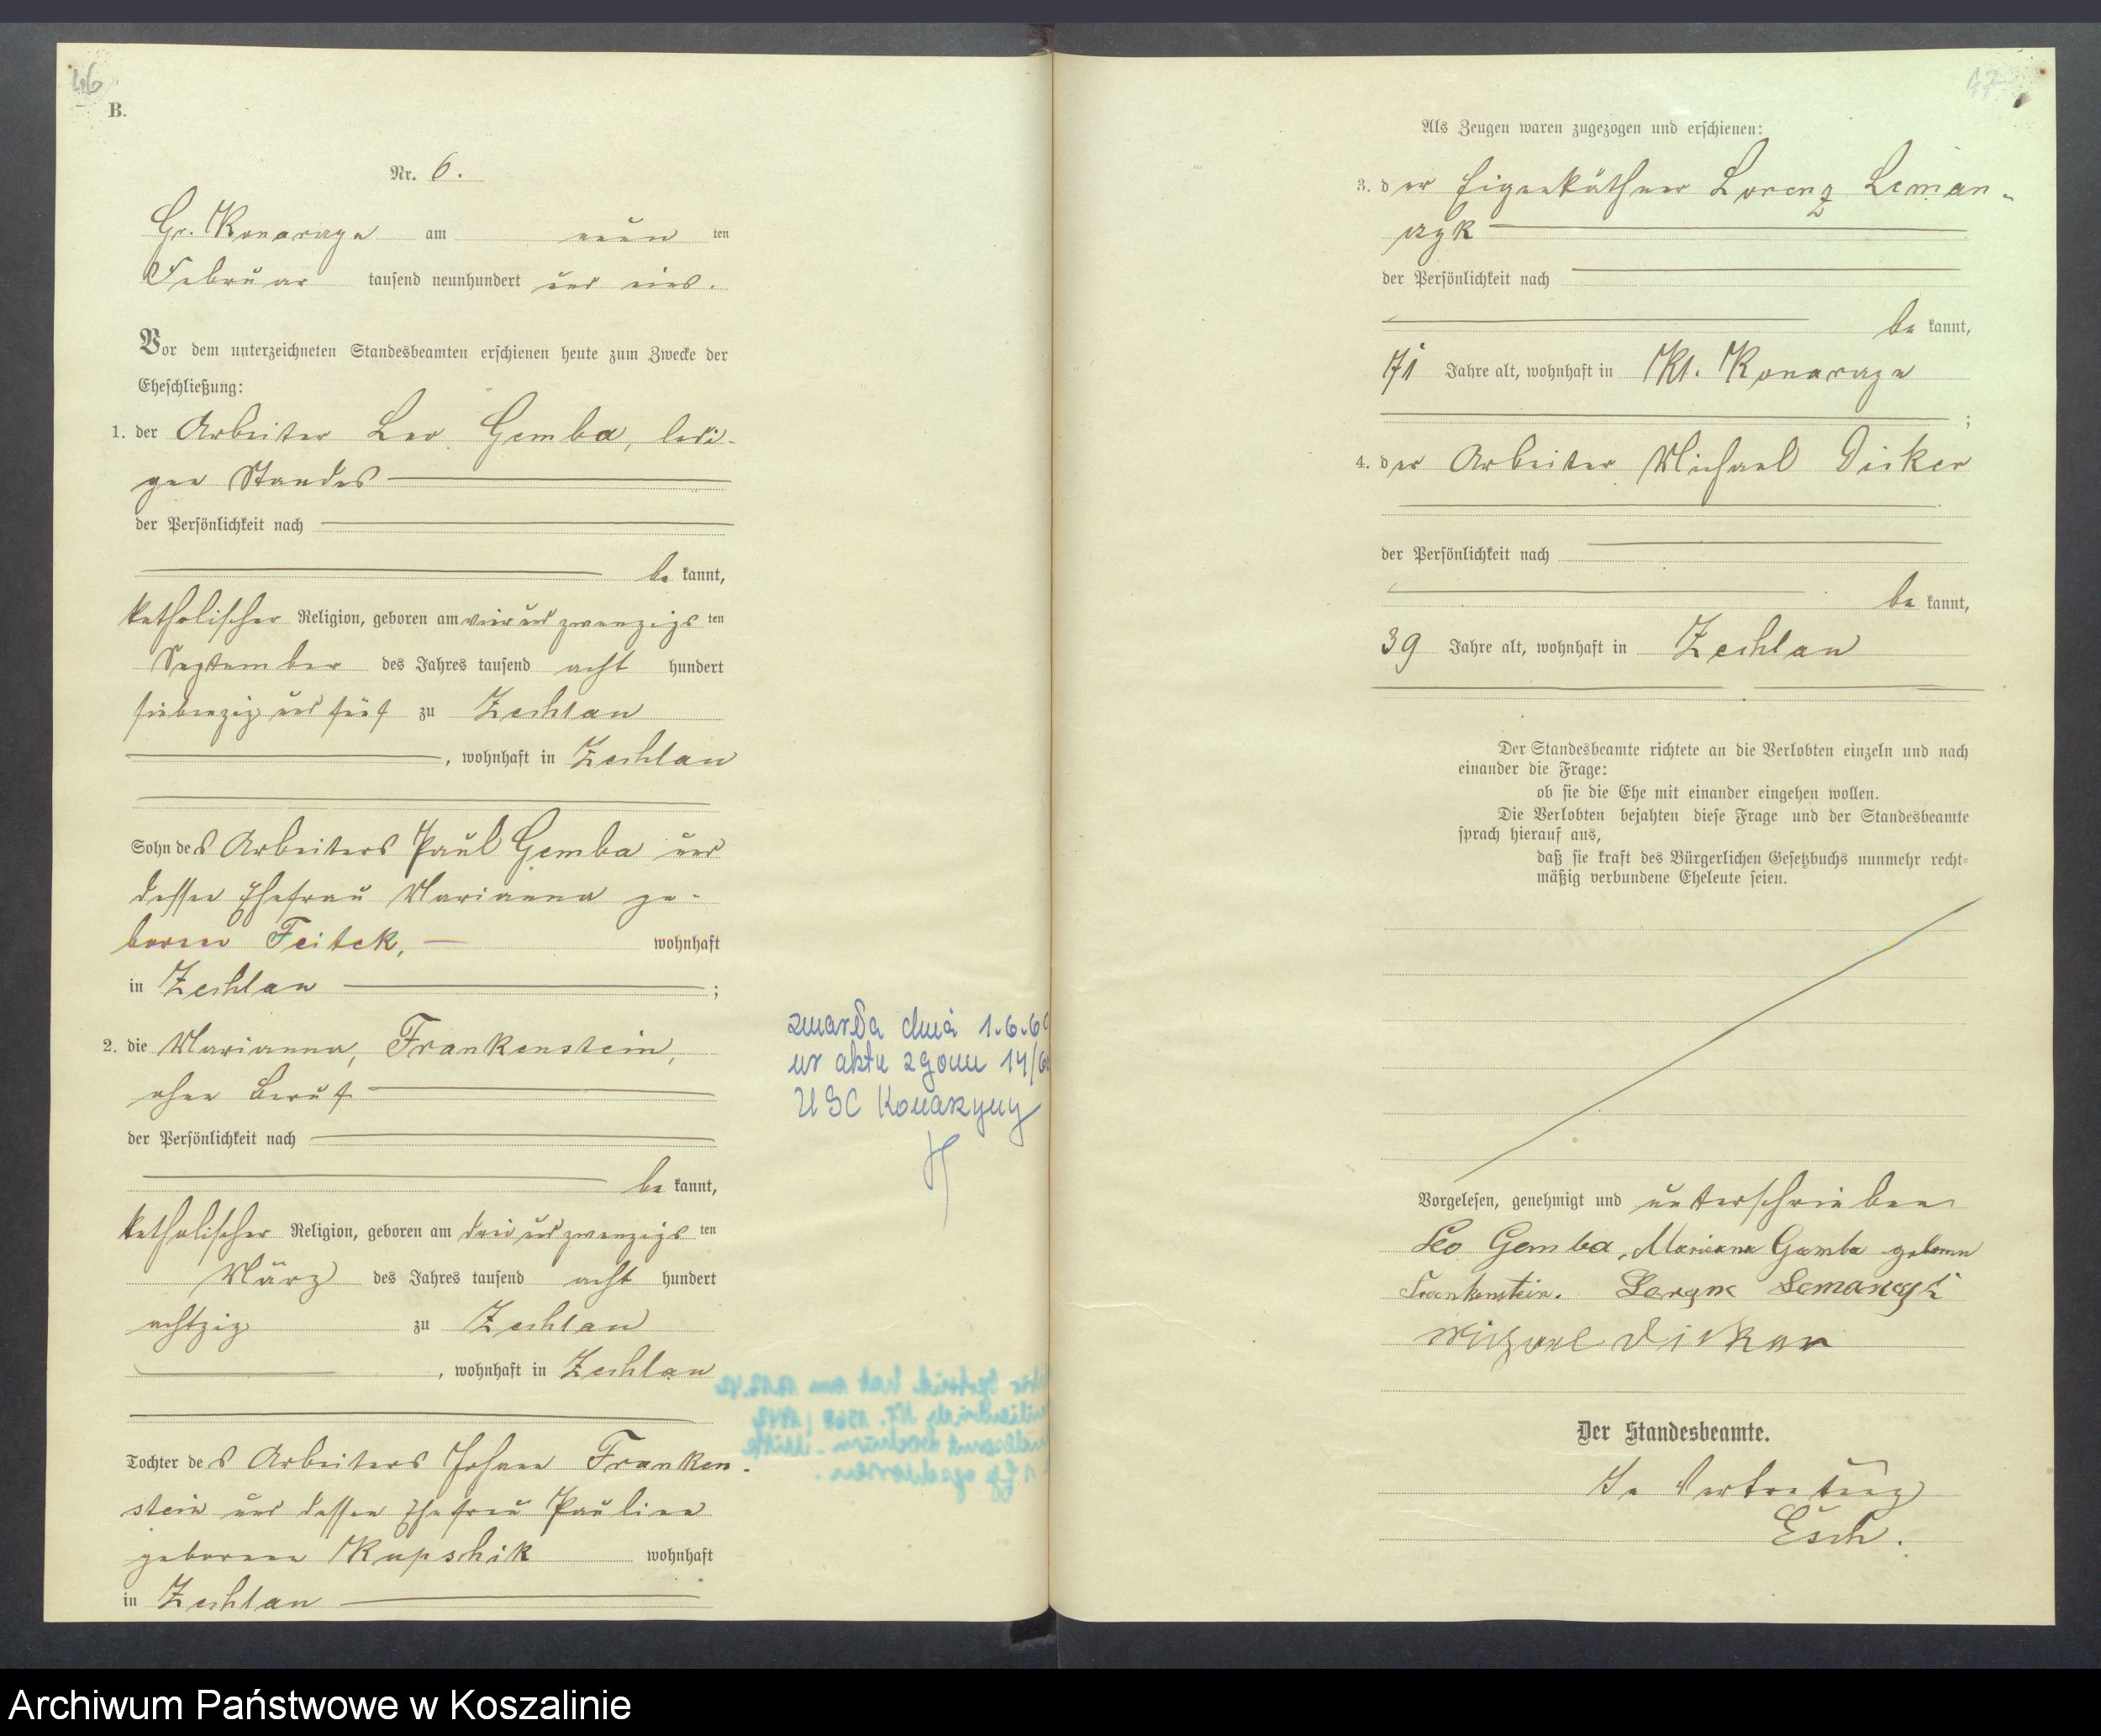 46
B.
Nr. 6.
Gr. Konarzyn am neun ten
Februar tausend neunhundert und eins.
Vor dem unterzeichneten Standesbeamten erschienen heute zum Zwecke der
Eheschließung:
1. der Arbeiter Leo Gemba, ledi-
gen Standes
der Persönlichkeit nach
be kannt,
katholischer Religion, geboren am vierundzwanzigs ten
September des Jahres tausend acht hundert
siebenzig und fünf zu Zechlau
, wohnhaft in Zechlau
Sohn des Arbeiters Paul Gemba und
dessen Ehefrau Marianna ge-
borene Feitek, wohnhaft
in Zechlau ;
2. die Marianna, Frankenstein,
ohne Beruf
der Persönlichkeit nach
be kannt,
katholischer Religion, geboren am drei und zwanzigs ten
März des Jahres tausend acht hundert
achtzig zu Zechlau
, wohnhaft in Zechlau
Tochter des Arbeiters Johann Franken-
stein und dessen Ehefrau Pauline
geborene Kupschik wohnhaft
in Zechlau
zmarła dnia 1.6.6
nr aktu zgonu 14/6
USC Konarzyny
Als Zeugen waren zugezogen und erschienen:
3. der Eigenkäthner Lorenz Leman-
czyk
der Persönlichkeit nach
be kannt,
71 Jahre alt, wohnhaft in Kl. Konarzyn
;
4. der Arbeiter Michael Dicker
der Persönlichkeit nach
be kannt,
39 Jahre alt, wohnhaft in Zechlau
Der Standesbeamte richtete an die Verlobten einzeln und nach
einander die Frage:
ob sie die Ehe mit einander eingehen wollen.
Die Verlobten bejahten diese Frage und der Standesbeamte
sprach hierauf aus,
daß sie kraft des Bürgerlichen Gesetzbuchs nunmehr recht-
mäßig verbundene Eheleute seien.
Vorgelesen, genehmigt und unterschrieben
Leo Gemba, Marianna Gemba geborene
Frankenstein. Lemanczyk
Michael Dicker
Der Standesbeamte.
In Vertretung
Esch.
Archiwum Państwowe w Koszalinie